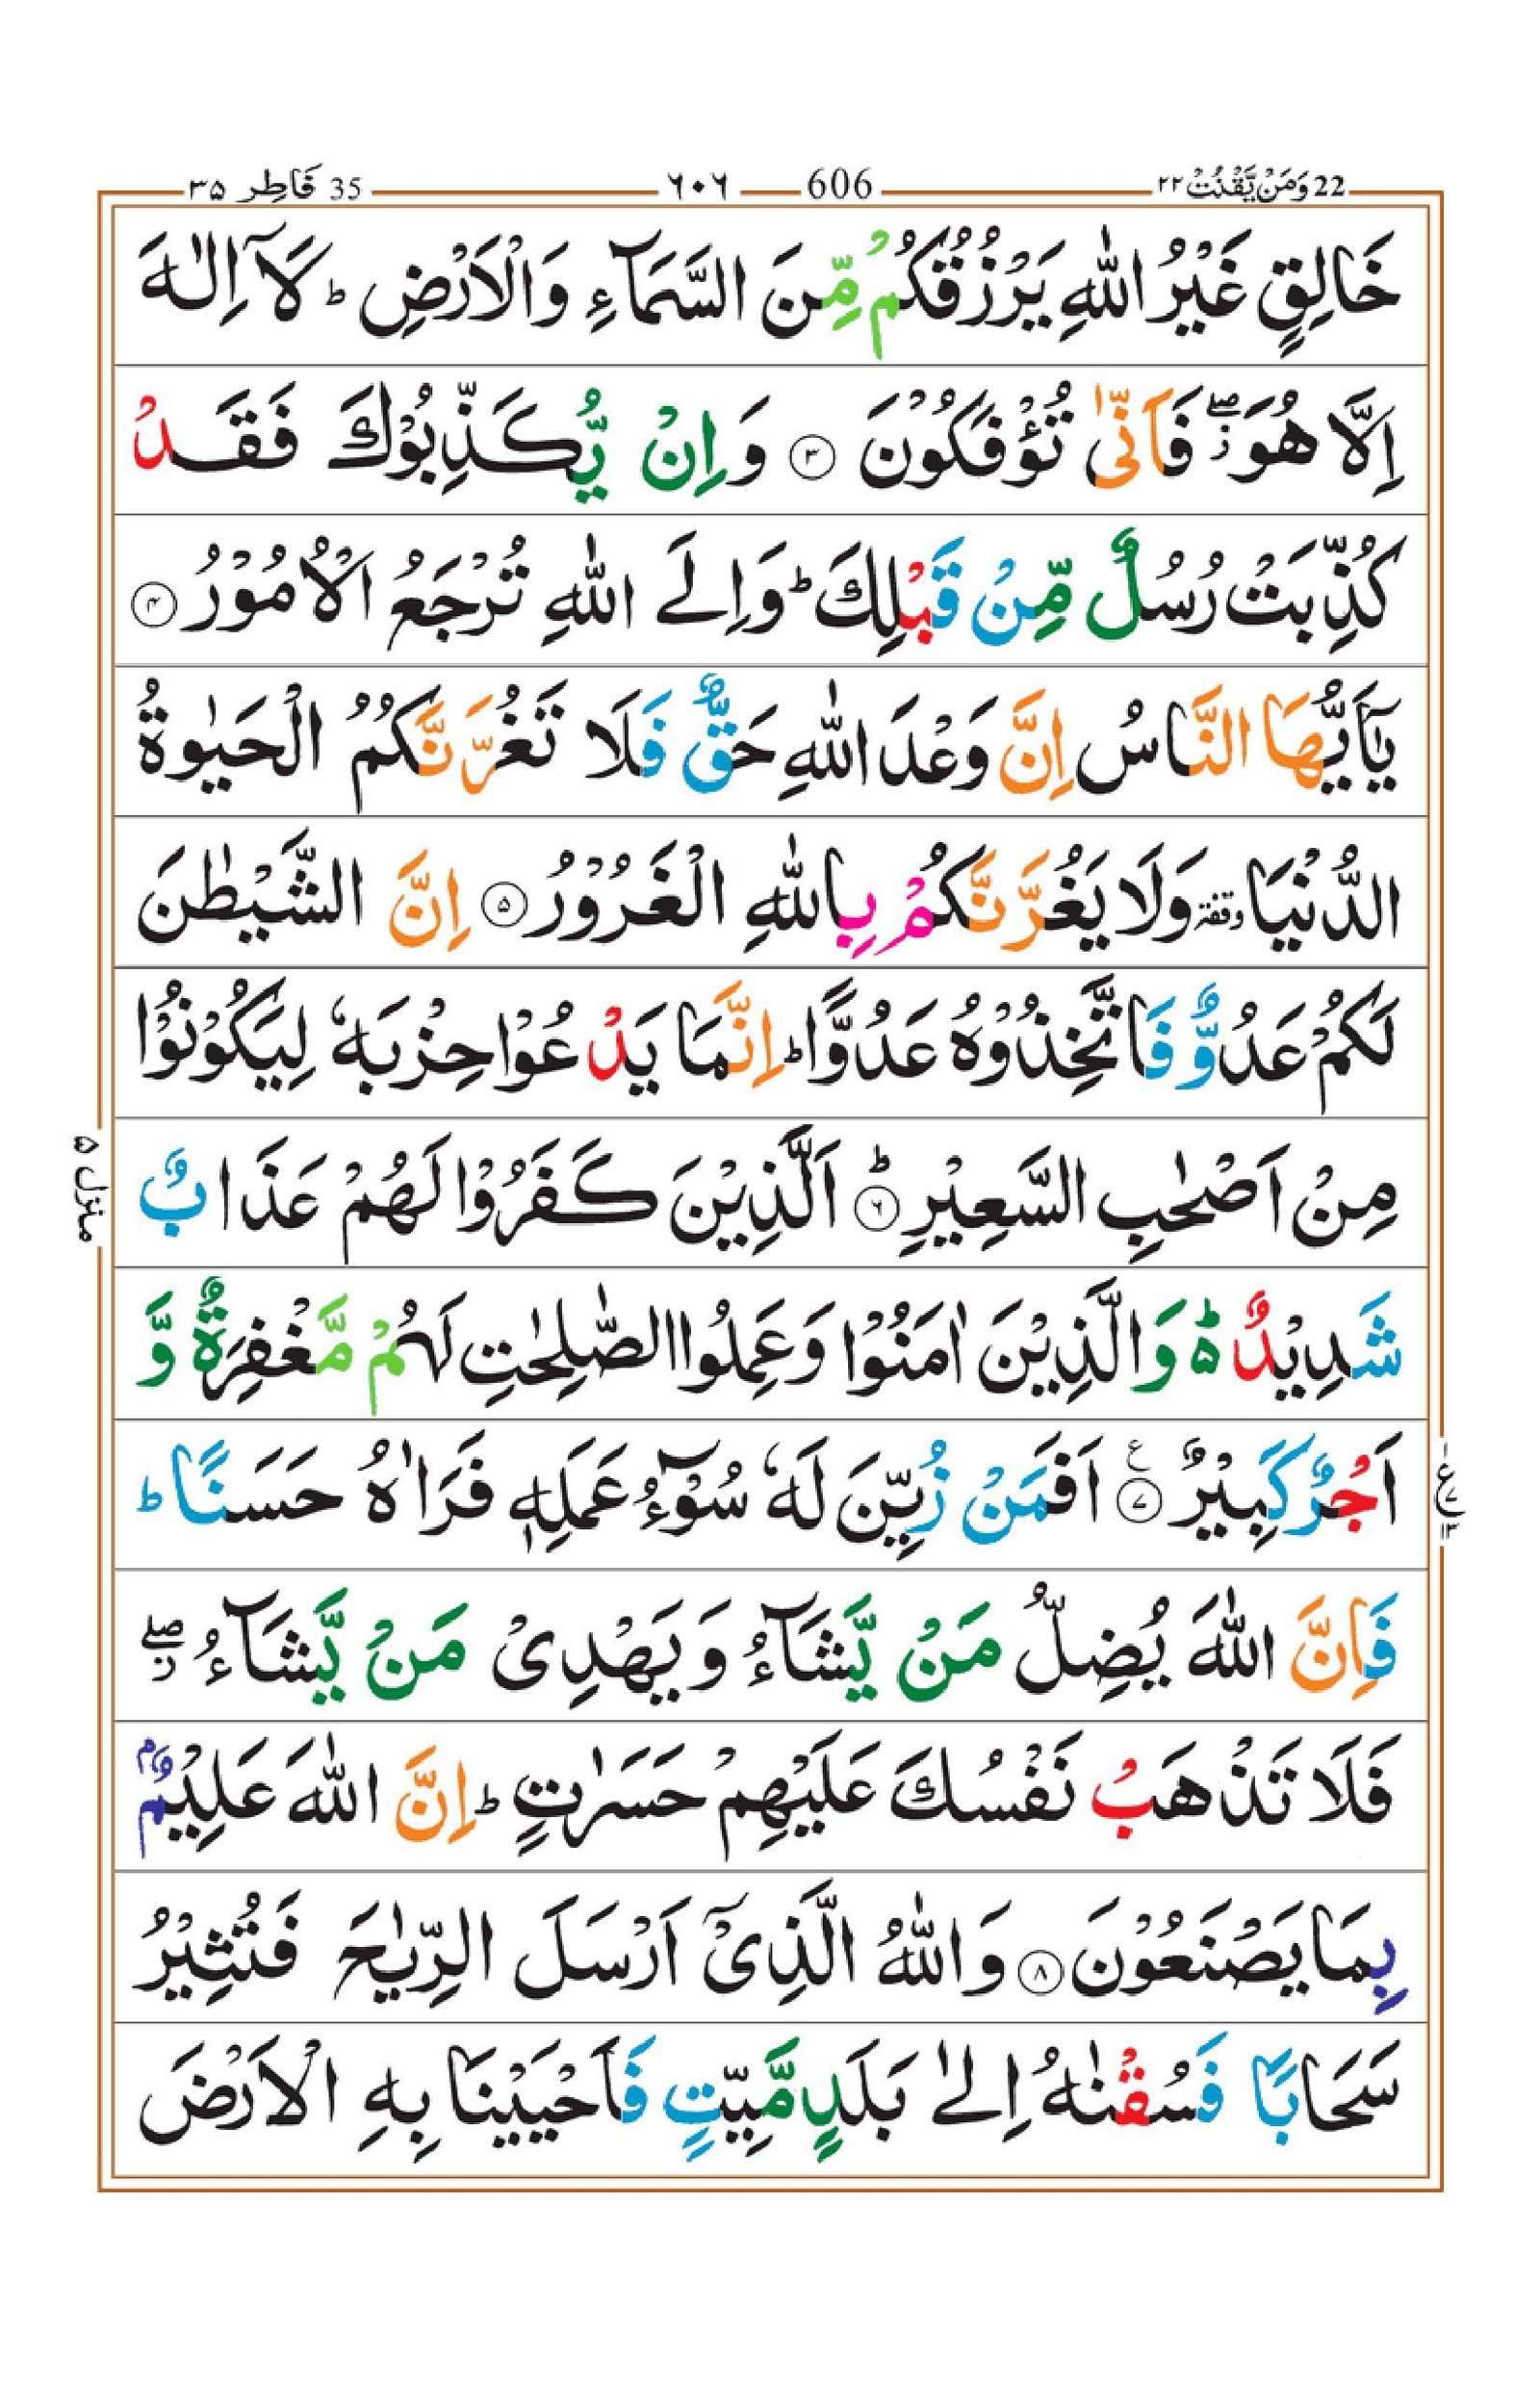 22 وَمَنْ يَّقْنُتْ ۲۲ 606 ٦٠٦ 35 فَاطِر ۳۵
خَالِقٍ غَيْرُ اللّٰهِ يَرْزُقُكُمْ مِّنَ السَّمَآءِ وَالْاَرْضِ ؕ لَاۤ اِلٰهَ
اِلَّا هُوَ ۖؗ فَاَنّٰى تُؤْفَكُوْنَ ۝۳ وَاِنْ يُّكَذِّبُوْكَ فَقَدْ
كُذِّبَتْ رُسُلٌ مِّنْ قَبْلِكَ ؕ وَاِلَى اللّٰهِ تُرْجَعُ الْاُمُوْرُ ۝۴
يٰۤاَيُّهَا النَّاسُ اِنَّ وَعْدَ اللّٰهِ حَقٌّ فَلَا تَغُرَّنَّكُمُ الْحَيٰوةُ
الدُّنْيَا وقفة وَلَا يَغُرَّنَّكُمْ بِاللّٰهِ الْغَرُوْرُ ۝۵ اِنَّ الشَّيْطٰنَ
لَكُمْ عَدُوٌّ فَاتَّخِذُوْهُ عَدُوًّا ؕ اِنَّمَا يَدْعُوْا حِزْبَهٗ لِيَكُوْنُوْا
مِنْ اَصْحٰبِ السَّعِيْرِ ۝۶ؕ اَلَّذِيْنَ كَفَرُوْا لَهُمْ عَذَابٌ
منزل ۵
شَدِيْدٌ ۬ؕ وَالَّذِيْنَ اٰمَنُوْا وَعَمِلُوا الصّٰلِحٰتِ لَهُمْ مَّغْفِرَةٌ وَّ
اَجْرٌ كَبِيْرٌ ۝۷ع اَفَمَنْ زُيِّنَ لَهٗ سُوْٓءُ عَمَلِهٖ فَرَاٰهُ حَسَنًا ؕ
فَاِنَّ اللّٰهَ يُضِلُّ مَنْ يَّشَآءُ وَيَهْدِىْ مَنْ يَّشَآءُ ۖؗ
فَلَا تَذْهَبْ نَفْسُكَ عَلَيْهِمْ حَسَرٰتٍ ؕ اِنَّ اللّٰهَ عَلِيْمٌۢ
بِمَا يَصْنَعُوْنَ ۝۸ وَاللّٰهُ الَّذِىْۤ اَرْسَلَ الرِّيٰحَ فَتُثِيْرُ
سَحَابًا فَسُقْنٰهُ اِلٰى بَلَدٍ مَّيِّتٍ فَاَحْيَيْنَا بِهِ الْاَرْضَ